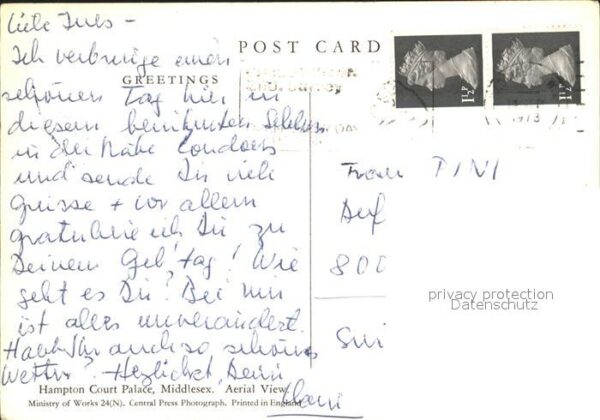 Liebe Ines -
Ich verbringe einen
schönen Tag hier in
diesem berühmten Schloss
in der Nähe Londons
und sende Dir viele
Grüsse + vor allem
gratuliere ich Dir zu
Deinem Geb'tag! Wie
geht es Dir? Bei mir
ist alles unverändert.
Habt Ihr auch so schönes
Wetter? Herzlichst, Deine
POST CARD
GREETINGS
1½P
1½P
1973
Frau PINI
800
privacy protection
Datenschutz
Hampton Court Palace, Middlesex. Aerial View
Ministry of Works 24(N). Central Press Photograph. Printed in England